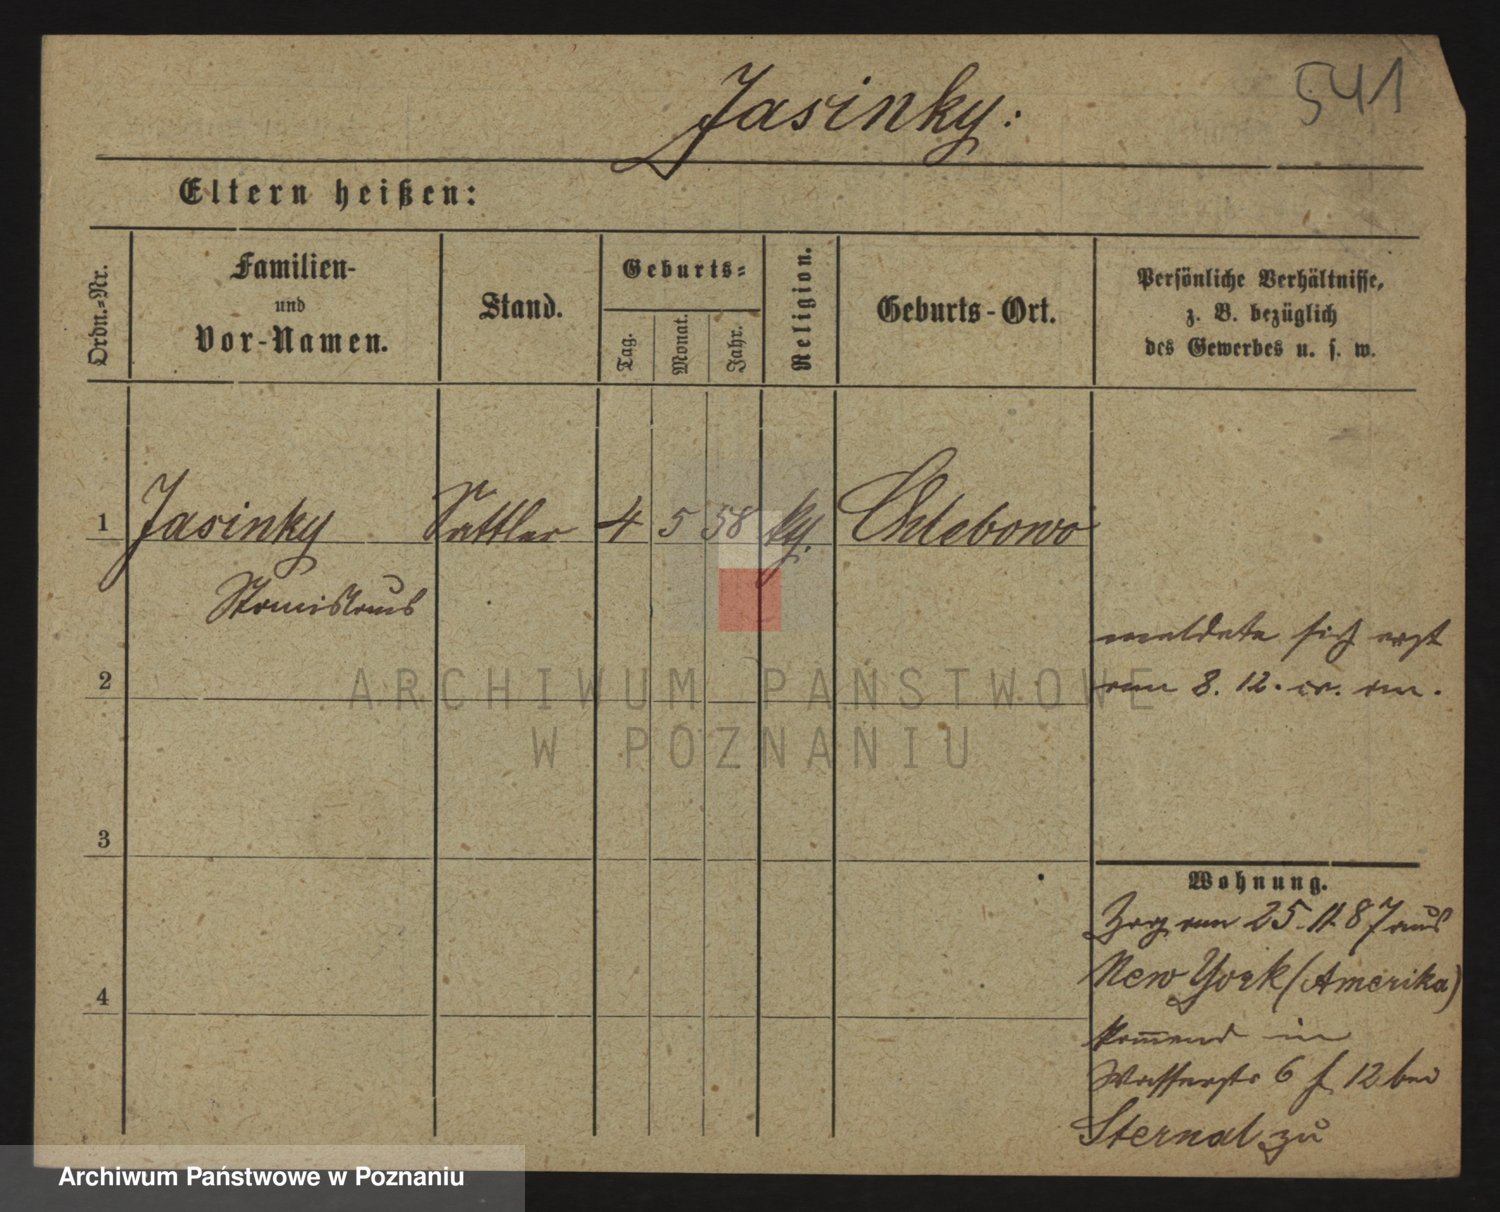 541
Jasinky:
Eltern heißen:
Ordn.-Nr.
Familien-
und
Vor-Namen.
Stand.
Geburts-
Tag.
Monat.
Jahr.
Religion.
Geburts-Ort.
Persönliche Verhältnisse,
z. B. bezüglich
des Gewerbes u. s. w.
1 Jasinky Sattler 4 5 58 Chlebowo
Stanislaus
meldete sich erst
am 8. 12. cr. an.
2
ARCHIWUM PAŃSTWOWE
W POZNANIU
3
Wohnung.
Zog am 25.11.87 aus
New York (Amerika)
4
kommend in
Wasserstr 6 12 bei
Sternal zu
Archiwum Państwowe w Poznaniu